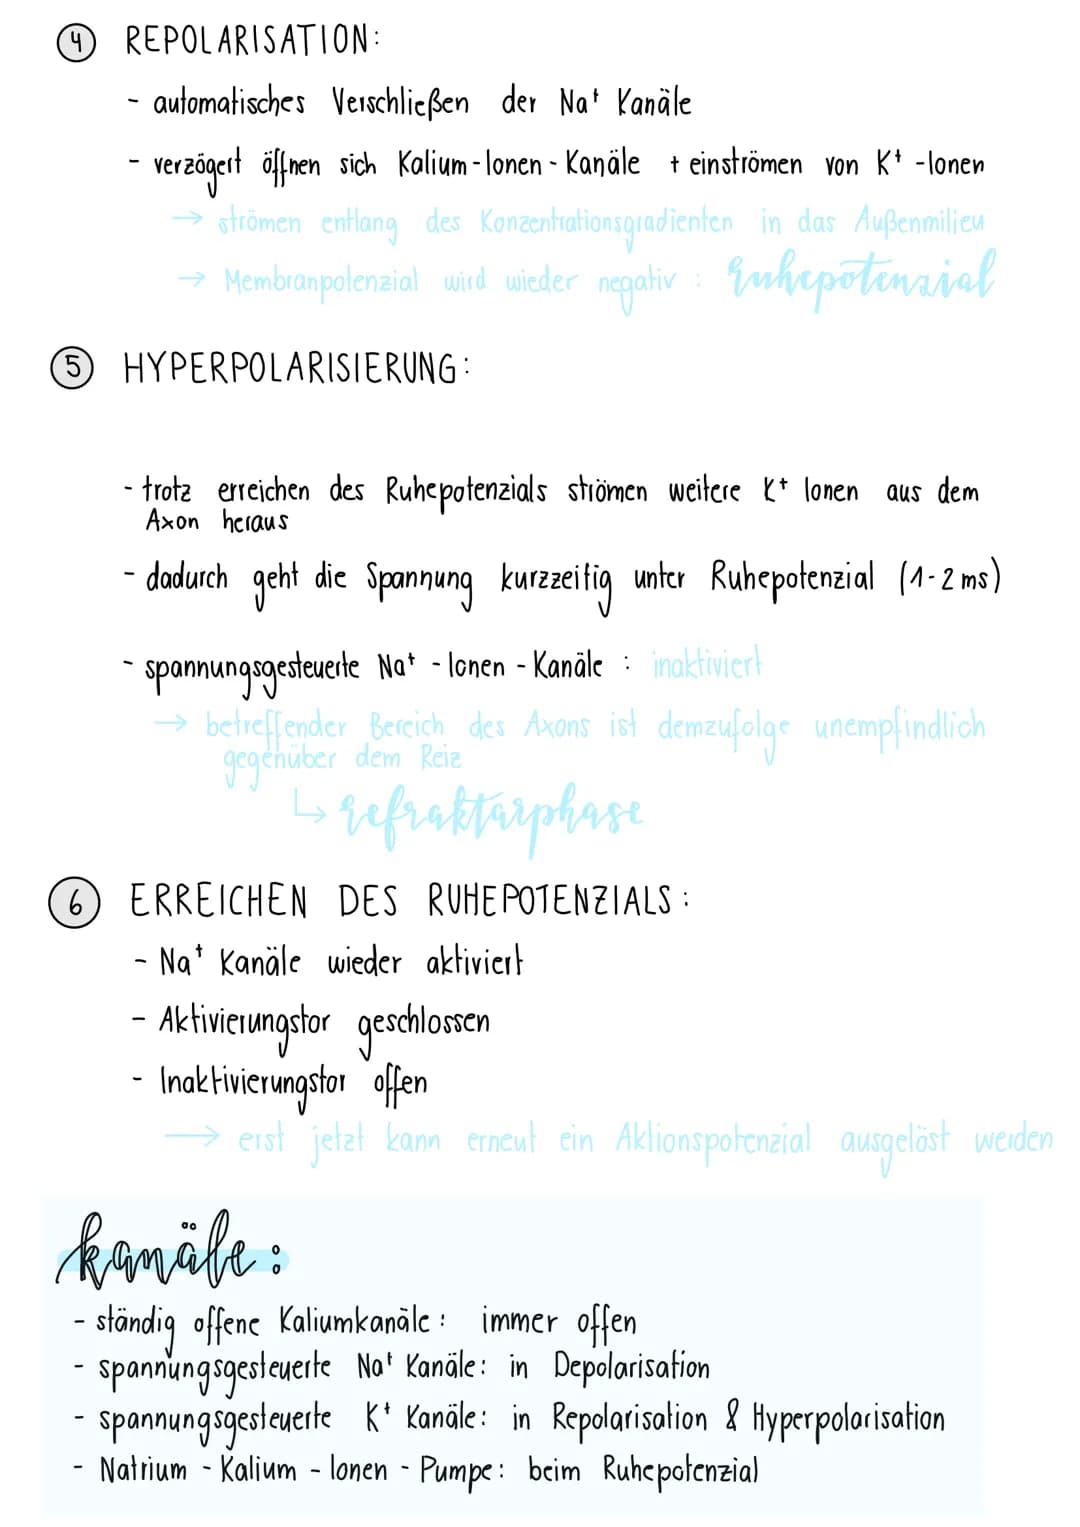 4 REPOLARISATION:
- automatisches Verschließen der Na⁺ Kanäle
- verzögert öffnen sich Kalium-Ionen-Kanäle + einströmen von K⁺-Ionen
→ strömen entlang des Konzentrationsgradienten in das Außenmilieu
→ Membranpolenzial wird wieder negativ: Ruhepotenzial
5 HYPERPOLARISIERUNG:
- trotz erreichen des Ruhepotenzials strömen weitere K⁺ Ionen aus dem
Axon heraus
- dadurch geht die Spannung kurzzeitig unter Ruhepotenzial (1-2 ms)
- spannungsgesteuerte Na⁺-Ionen-Kanäle: inaktiviert
→ betreffender Bereich des Axons ist demzufolge unempfindlich
gegenüber dem Reiz
↳ Refraktärphase
6 ERREICHEN DES RUHEPOTENZIALS:
- Na⁺ Kanäle wieder aktiviert
- Aktivierungstor geschlossen
- Inaktivierungstor offen
→ erst jetzt kann erneut ein Aktionspotenzial ausgelöst werden
kanäle:
- ständig offene Kaliumkanäle: immer offen
- spannungsgesteuerte Na⁺ Kanäle: in Depolarisation
- spannungsgesteuerte K⁺ Kanäle: in Repolarisation & Hyperpolarisation
- Natrium-Kalium-Ionen-Pumpe: beim Ruhepotenzial